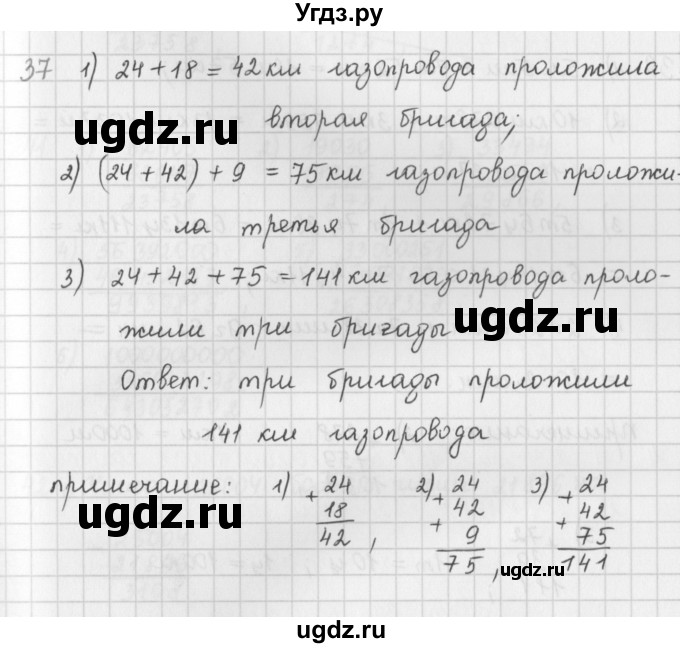 Угдз.ру
37 1) 24 + 18 = 42 км газопровода проложила
ugdz.ru вторая бригада;
2) (24 + 42) + 9 = 75 км газопровода проложи-
ла третья бригада
3) 24 + 42 + 75 = 141 км газопровода проло-
жили три бригады ugdz.ru
Ответ: три бригады проложили
141 км газопровода
примечание: 1) + 24 2) + 24 3) + 24
18 + 42 + 42
ugdz.ru 42, 9 75
75, ugdz.ru 141
ugdz.ru